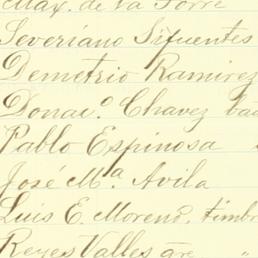 Max. de la Torre
Severiano Sifuentes
Demetrio Ramirez
Donac.º Chavez
Pablo Espinosa
José M.ª Avila
Luis E. Moreno, timbr
Reyes Valles